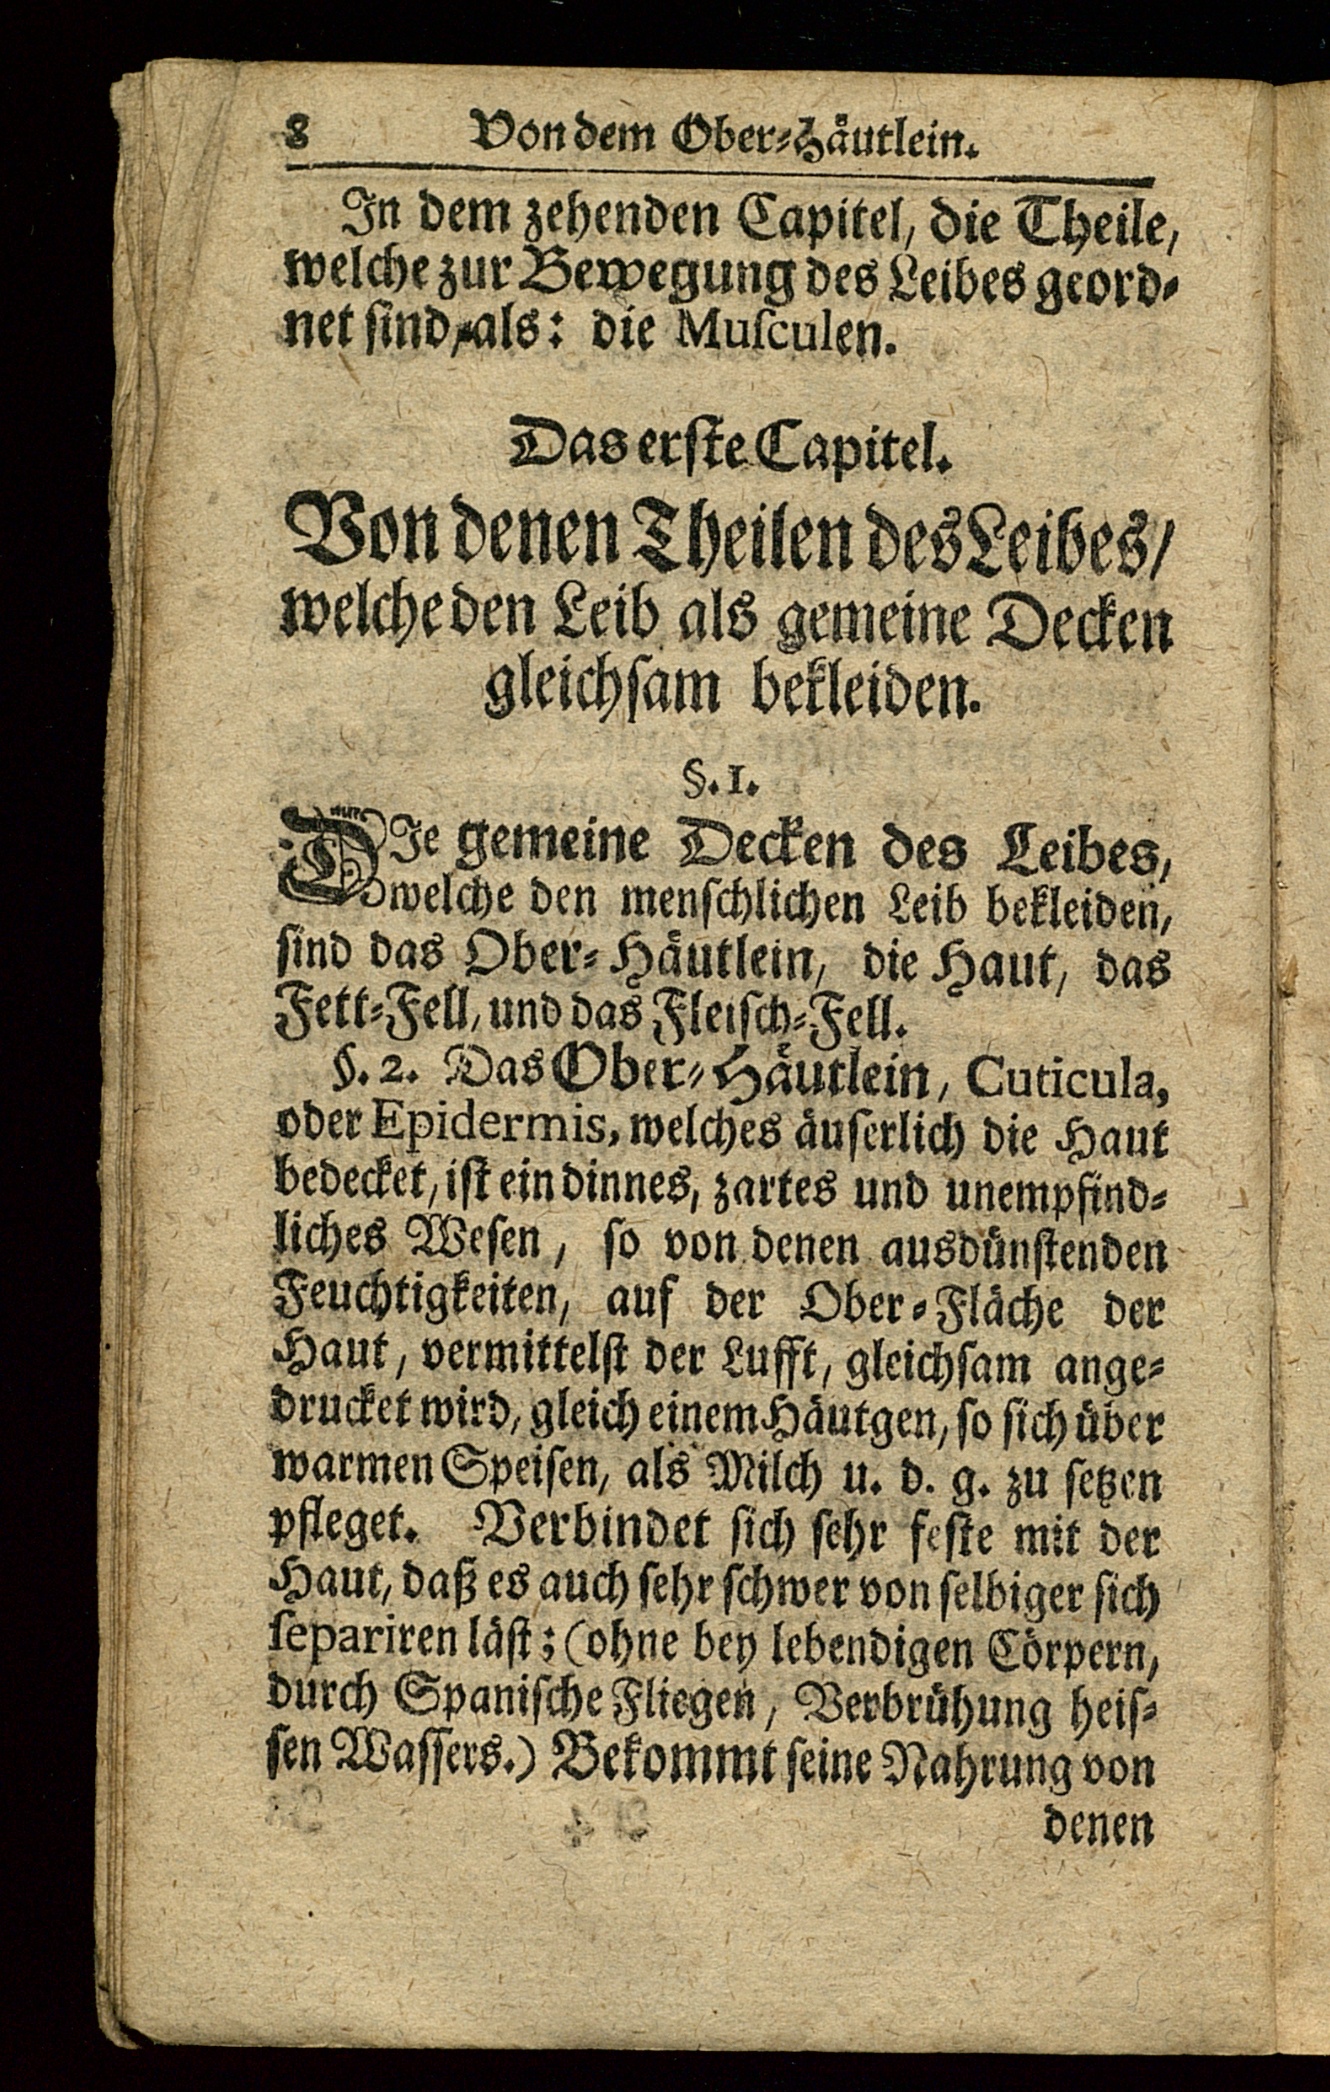 8 Von dem Ober-Häutlein.
In dem zehenden Capitel, die Theile,
welche zur Bewegung des Leibes geord-
net sind, als: die Musculen.
Das erste Capitel.
Von denen Theilen des Leibes/
welche den Leib als gemeine Decken
gleichsam bekleiden.
§. 1.
DIe gemeine Decken des Leibes,
welche den menschlichen Leib bekleiden,
sind das Ober-Häutlein, die Haut, das
Fett-Fell, und das Fleisch-Fell.
§. 2. Das Ober-Häutlein, Cuticula,
oder Epidermis, welches äuserlich die Haut
bedecket, ist ein dinnes, zartes und unempfind-
liches Wesen, so von denen ausdünstenden
Feuchtigkeiten, auf der Ober-Fläche der
Haut, vermittelst der Lufft, gleichsam ange-
drucket wird, gleich einem Häutgen, so sich über
warmen Speisen, als Milch u. d. g. zu setzen
pfleget. Verbindet sich sehr feste mit der
Haut, daß es auch sehr schwer von selbiger sich
separiren läst; (ohne bey lebendigen Cörpern,
durch Spanische Fliegen, Verbrühung heis-
sen Wassers.) Bekommt seine Nahrung von
denen